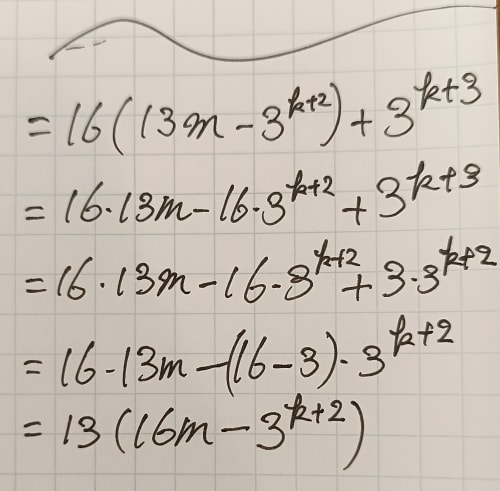 = 16(13m - 3^{k+2}) + 3^{k+3}
= 16·13m - 16·3^{k+2} + 3^{k+3}
= 16·13m - 16·3^{k+2} + 3·3^{k+2}
= 16·13m - (16-3)·3^{k+2}
= 13(16m - 3^{k+2})